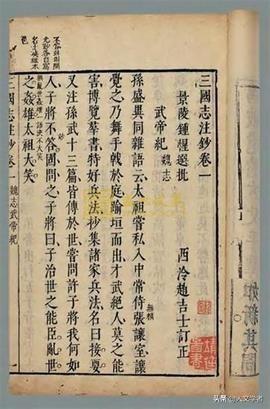 三國志注鈔卷一
景陵鍾惺選批
西泠趙吉士訂正
武帝紀 魏志
孫盛異同雜語云太祖嘗私入中常侍張讓室讓
覺之乃舞手戟於庭踰垣而出才武絕人莫之能
無賴
害博覽羣書特好兵法抄集諸家兵法名曰接要
又注孫武十三篇皆傳於世嘗問許子將我何如
人子將不答固問之子將曰子治世之能臣亂世
妙
之姦雄太祖大笑
三國志注鈔卷一 魏志武帝紀
頭条 @人文学者